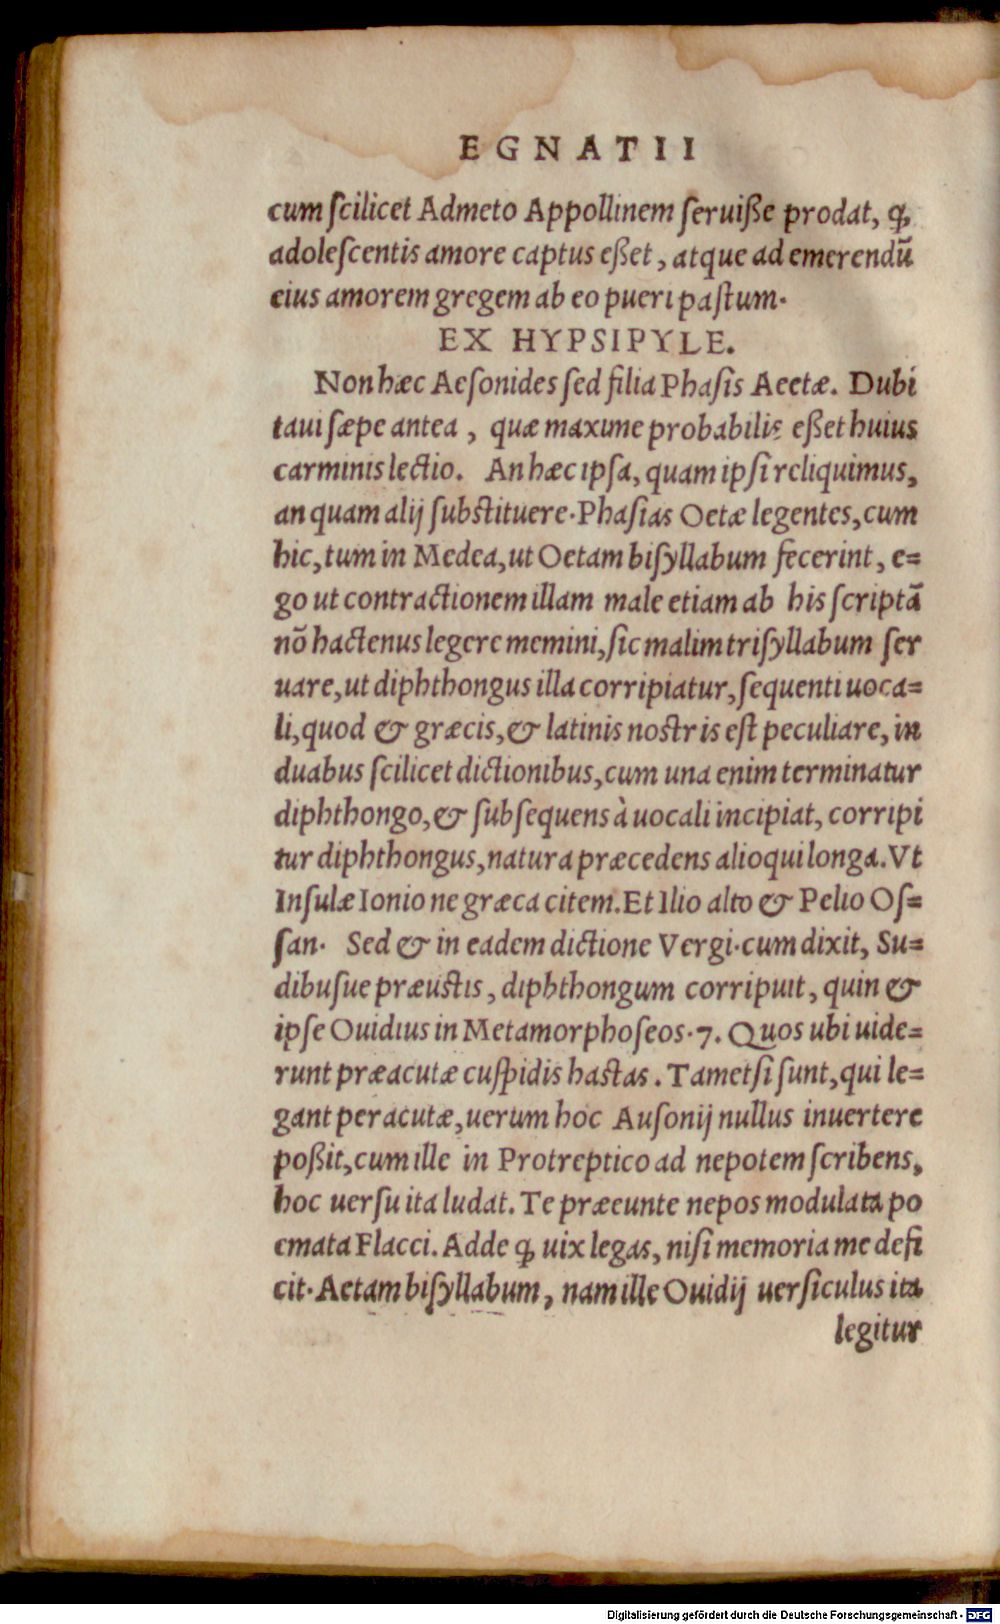 EGNATII
cum ſcilicet Admeto Appollinem ſeruiſſe prodat, ꝙ
adoleſcentis amore captus eſſet, atque ad emerendū
eius amorem gregem ab eo pueri paſtum.
EX HYPSIPYLE.
Non hæc Aeſonides ſed filia Phaſis Aeetæ. Dubi
taui ſæpe antea, quæ maxime probabilis eſſet huius
carminis lectio. An hæc ipſa, quam ipſi reliquimus,
an quam alij ſubstituere. Phaſias Oetæ legentes, cum
hic, tum in Medea, ut Oetam biſyllabum fecerint, e=
go ut contractionem illam male etiam ab his ſcriptā
nō hactenus legere memini, ſic malim triſyllabum ſer
uare, ut diphthongus illa corripiatur, ſequenti uoca=
li, quod & græcis, & latinis nostris eſt peculiare, in
duabus ſcilicet dictionibus, cum una enim terminatur
diphthongo, & ſubſequens à uocali incipiat, corripi
tur diphthongus, natura præcedens alioqui longa. Vt
Inſulæ Ionio ne græca citem. Et Ilio alto & Pelio Oſ=
ſan. Sed & in eadem dictione Vergi. cum dixit, Su=
dibuſue præustis, diphthongum corripuit, quin &
ipſe Ouidius in Metamorphoſeos. 7. Quos ubi uide=
runt præacutæ cuſpidis hastas. Tametſi ſunt, qui le=
gant peracutæ, uerum hoc Auſonij nullus inuertere
poſſit, cum ille in Protreptico ad nepotem ſcribens,
hoc uerſu ita ludat. Te præeunte nepos modulata po
emata Flacci. Adde ꝙ uix legas, niſi memoria me defi
cit. Aetam biſyllabum, nam ille Ouidij uerſiculus ita
legitur
Digitalisierung gefördert durch die Deutsche Forschungsgemeinschaft - DFG